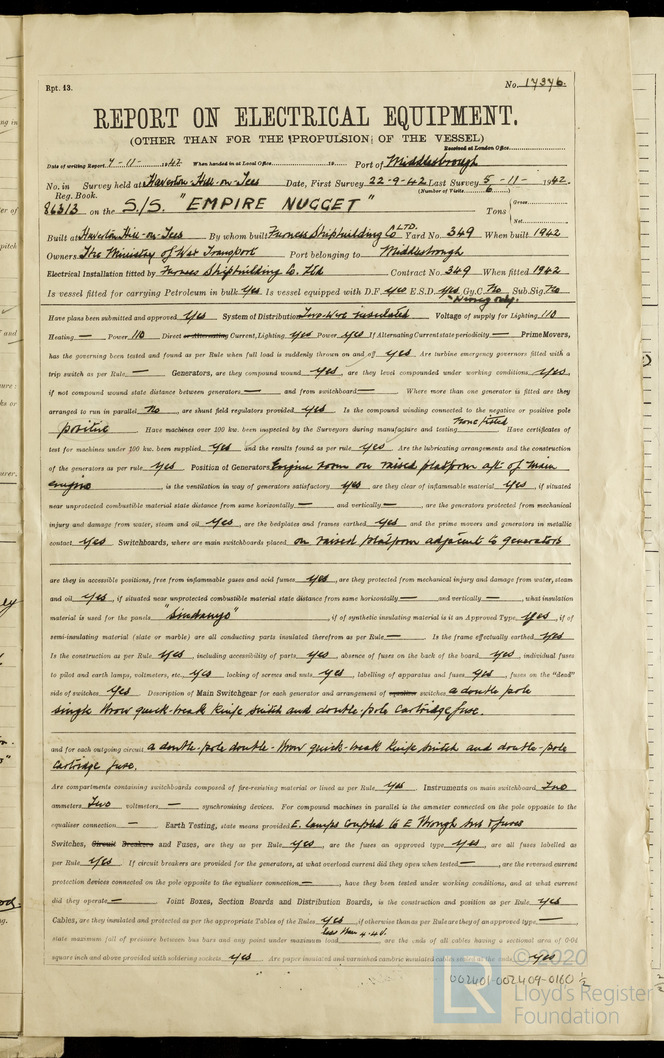 Rpt. 13.
No. 17376.
REPORT ON ELECTRICAL EQUIPMENT.
(OTHER THAN FOR THE PROPULSION OF THE VESSEL)
Received at London Office
Date of writing Report 7-11- 1942 When handed in at Local Office 19 Port of Middlesbrough
No. in Survey held at Haverton Hill-on-Tees Date, First Survey 22-9-42 Last Survey 5-11- 1942.
Reg. Book. (Number of Visits 6 )
86313 on the S/S. "EMPIRE NUGGET" Tons { Gross
Net
Built at Haverton Hill-on-Tees By whom built Furness Shipbuilding Co LTD. Yard No. 349 When built 1942
Owners The Ministry of War Transport Port belonging to Middlesbrough
Electrical Installation fitted by Furness Shipbuilding Co. Ltd Contract No. 349 When fitted 1942
Is vessel fitted for carrying Petroleum in bulk Yes Is vessel equipped with D.F. Yes E.S.D. Yes Gy.C. No Sub.Sig. No
"Wiring only."
Have plans been submitted and approved Yes System of Distribution Two-Wire insulated Voltage of supply for Lighting 110
Heating — Power 110 Direct or Alternating Current, Lighting Yes Power Yes If Alternating Current state periodicity — Prime Movers,
has the governing been tested and found as per Rule when full load is suddenly thrown on and off Yes Are turbine emergency governors fitted with a
trip switch as per Rule — Generators, are they compound wound Yes, are they level compounded under working conditions Yes,
if not compound wound state distance between generators — and from switchboard — Where more than one generator is fitted are they
arranged to run in parallel No, are shunt field regulators provided Yes Is the compound winding connected to the negative or positive pole
positive Have machines over 100 kw. been inspected by the Surveyors during manufacture and testing None fitted Have certificates of
test for machines under 100 kw. been supplied Yes and the results found as per rule Yes Are the lubricating arrangements and the construction
of the generators as per rule Yes Position of Generators Engine room on raised platform aft of main
engine, is the ventilation in way of generators satisfactory Yes are they clear of inflammable material Yes, if situated
near unprotected combustible material state distance from same horizontally — and vertically —, are the generators protected from mechanical
injury and damage from water, steam and oil Yes, are the bedplates and frames earthed Yes and the prime movers and generators in metallic
contact Yes Switchboards, where are main switchboards placed on raised platform adjacent to generators
are they in accessible positions, free from inflammable gases and acid fumes Yes, are they protected from mechanical injury and damage from water, steam
and oil Yes, if situated near unprotected combustible material state distance from same horizontally — and vertically —, what insulation
material is used for the panels "Sindanyo", if of synthetic insulating material is it an Approved Type Yes, if of
semi-insulating material (slate or marble) are all conducting parts insulated therefrom as per Rule — Is the frame effectually earthed Yes
Is the construction as per Rule Yes, including accessibility of parts Yes, absence of fuses on the back of the board Yes, individual fuses
to pilot and earth lamps, voltmeters, etc. Yes locking of screws and nuts Yes, labelling of apparatus and fuses Yes, fuses on the "dead"
side of switches Yes Description of Main Switchgear for each generator and arrangement of equaliser switches a double pole
single throw quick-break knife switch and double-pole cartridge fuse.
and for each outgoing circuit a double-pole double-throw quick-break knife switch and double-pole
cartridge fuse.
Are compartments containing switchboards composed of fire-resisting material or lined as per Rule Yes Instruments on main switchboard Two
ammeters Two voltmeters — synchronising devices. For compound machines in parallel is the ammeter connected on the pole opposite to the
equaliser connection — Earth Testing, state means provided E. lamps coupled to E through sws & fuses
Switches, Circuit Breakers and Fuses, are they as per Rule Yes, are the fuses an approved type Yes, are all fuses labelled as
per Rule Yes If circuit breakers are provided for the generators, at what overload current did they open when tested —, are the reversed current
protection devices connected on the pole opposite to the equaliser connection —, have they been tested under working conditions, and at what current
did they operate — Joint Boxes, Section Boards and Distribution Boards, is the construction and position as per Rule Yes
Cables, are they insulated and protected as per the appropriate Tables of the Rules Yes, if otherwise than as per Rule are they of an approved type —
state maximum fall of pressure between bus bars and any point under maximum load less than 4.4V., are the ends of all cables having a sectional area of 0.04
square inch and above provided with soldering sockets Yes Are paper insulated and varnished cambric insulated cables sealed at the ends Yes
© 2020
LR
Lloyd's Register
Foundation
002401-002409-0160 1/2